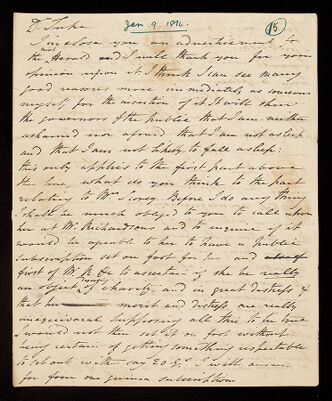 Jan 9. 1814.
15
Dr. Tuke
I inclose you an advertisement to
the Herald and I will thank you for your
opinion upon it. I think I can see many
good reasons more immediately as concerns
myself for the insertion of it. It will shew
the governors & the public that I am neither
ashamed nor afraid that I am not asleep
and that I am not likely to fall asleep.
this only applies to the first part above
the line, what do you think to the part
relating to Mrs. Before I do any thing
I shall be much obliged to you to call upon
her at Mr. Richardsons and to enquire if it
would be agreable to her to have a public
subscription set on foot for her and
first of to ascertain if she be really
an object of charity, and in great distress &
that her merit and distress are really
unequivocal supposing all this to be true
I would not then set it on foot without
being certain of getting something respectable
to set out with say 20£. I will answer
for four one guinea subscriptions